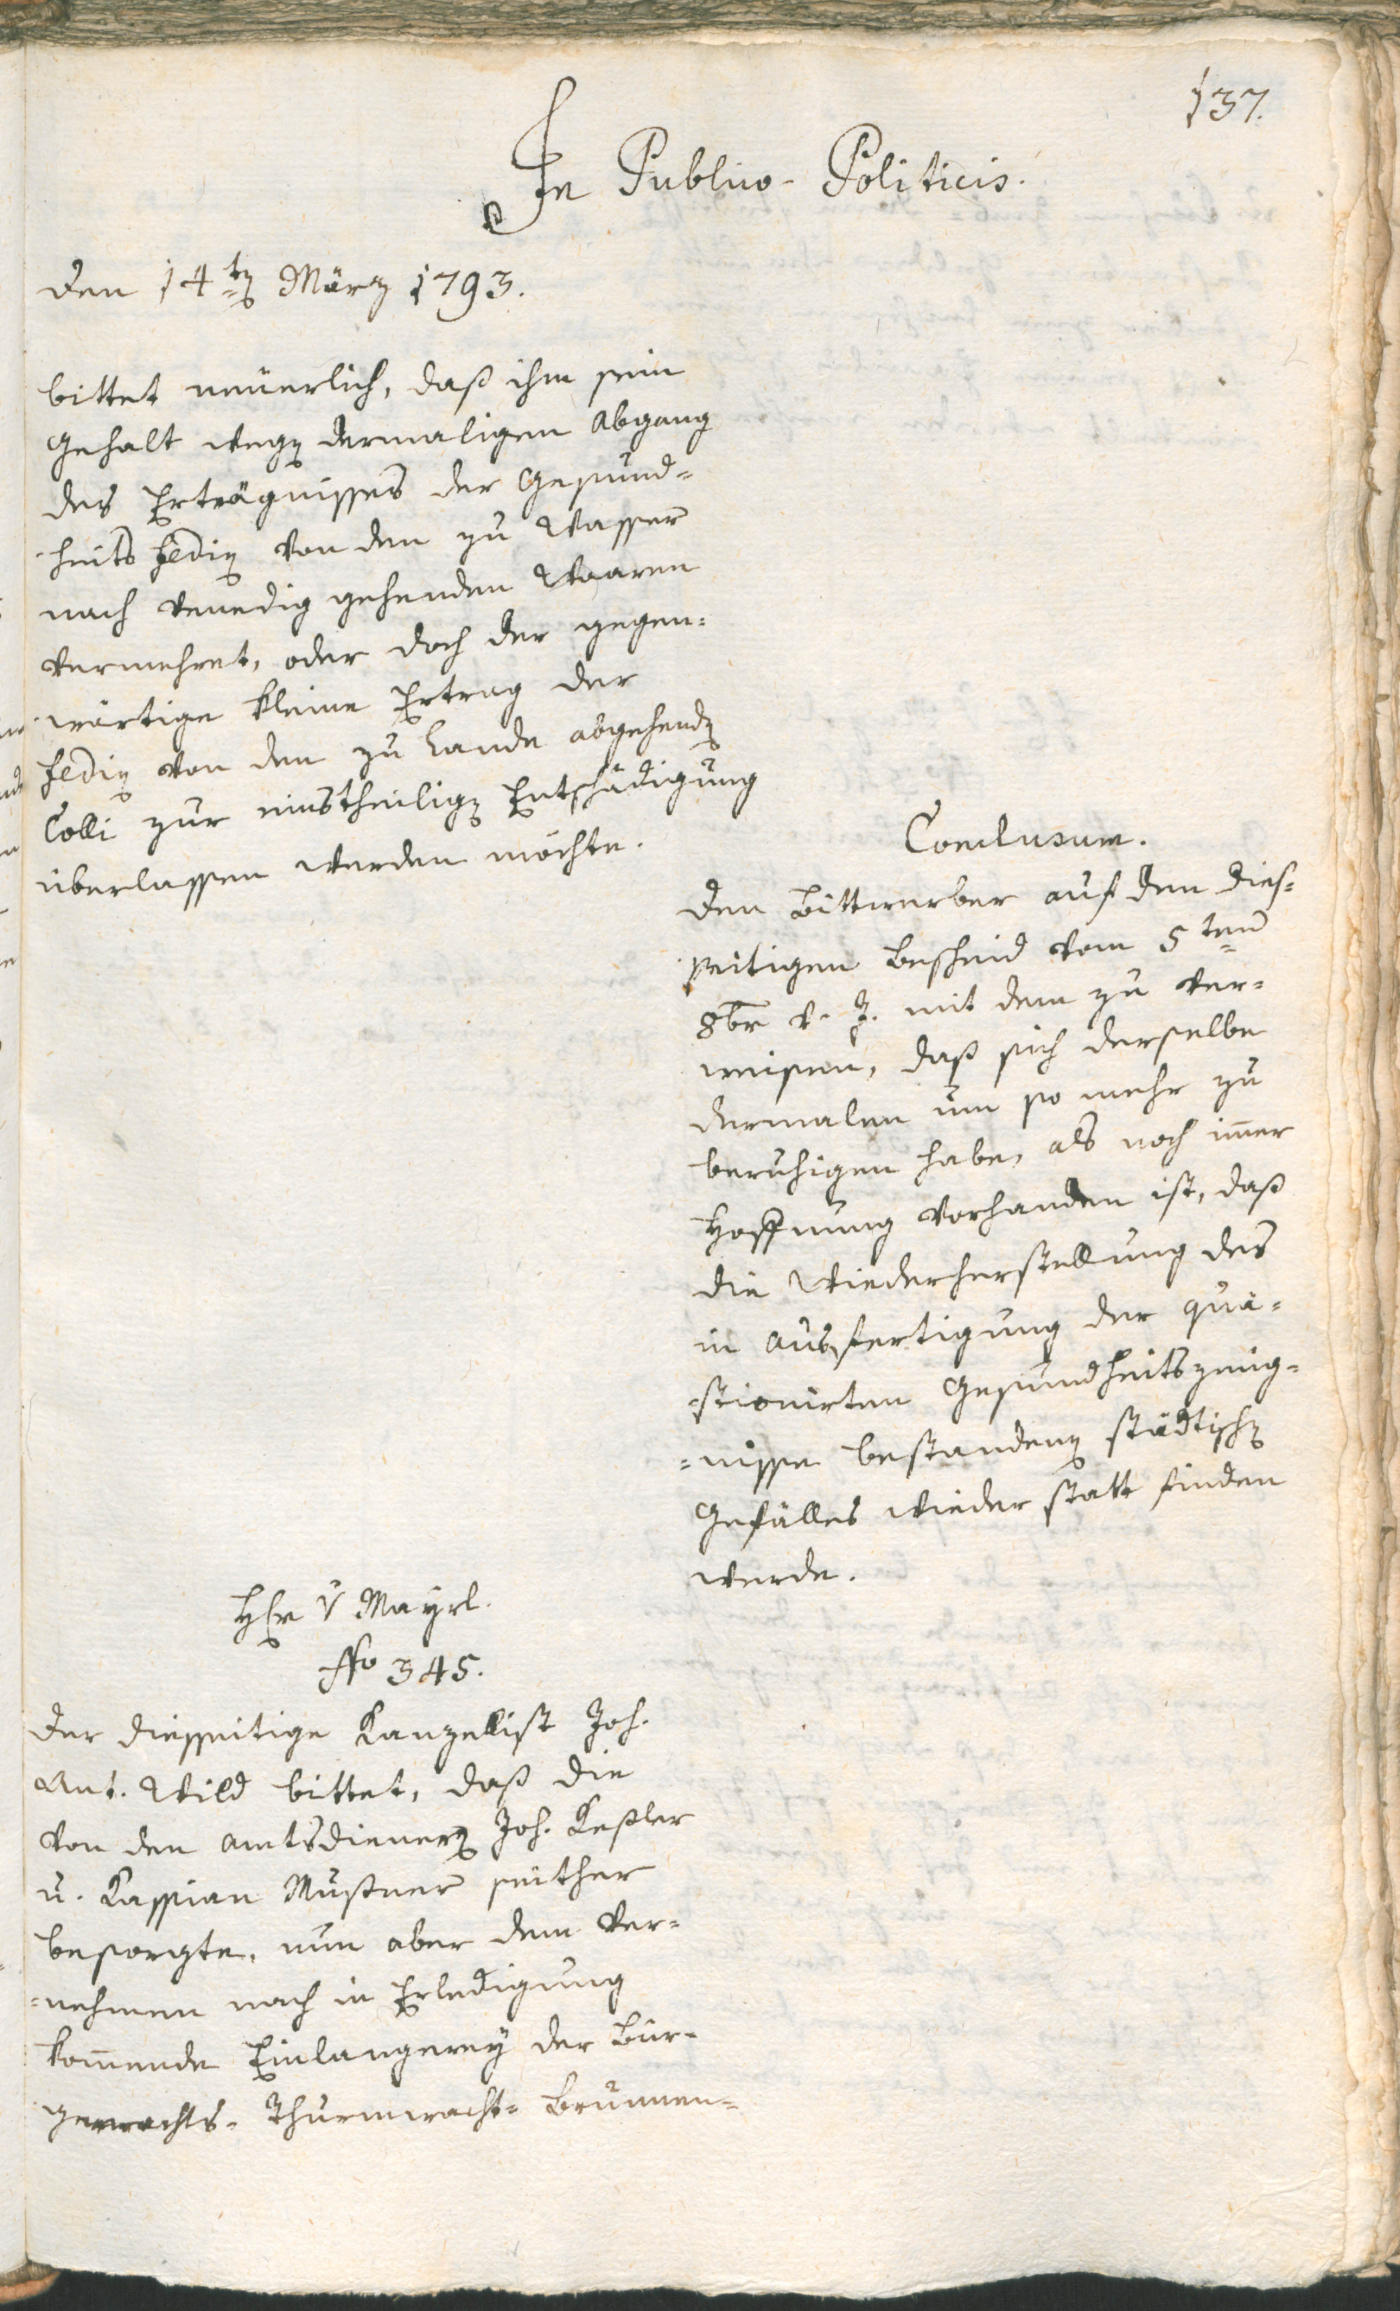 137.
In Publico-Politicis.
den 14ten März 1793.
bittet neüerlich, daß ihm sein
Gehalt wegen dermaligen Abgang
des Erträgnißes der Gesund=
heits fedin von den zu Wasser
nach Venedig gehenden Waaren
vermehret, oder doch der gegen=
wärtige kleine Ertrag der
fedin von den zu Lande abgehenden
Colli zur einstheiligen Entschädigung
überlassen werden möchte.
Conclusum.
den Bittwerber auf den dies=
seitigen Bescheid vom 5ten
8br v. J. mit dem zu ver=
weisen, daß sich derselbe
dermalen um so mehr zu
beruhigen habe, als noch imer
Hoffnung vorhanden ist, daß
die Wiederherstellung des
in Ausfertigung der quä=
=stionirten Gesundheitszeug=
=nisse bestandenen städtischen
Gefälles wieder statt finden
werde.
Hr v Mayrl.
No 345.
der diesseitige Kanzellist Joh.
Ant. Wild bittet, daß die
von den Amtsdienern Joh. Keßler
u. Kassian Mußner seither
besorgte, nun aber dem Ver=
=nehmen nach in Erledigung
komende Einlangerey der Bür=
gerwachts- Thurmwacht= Brunnen=